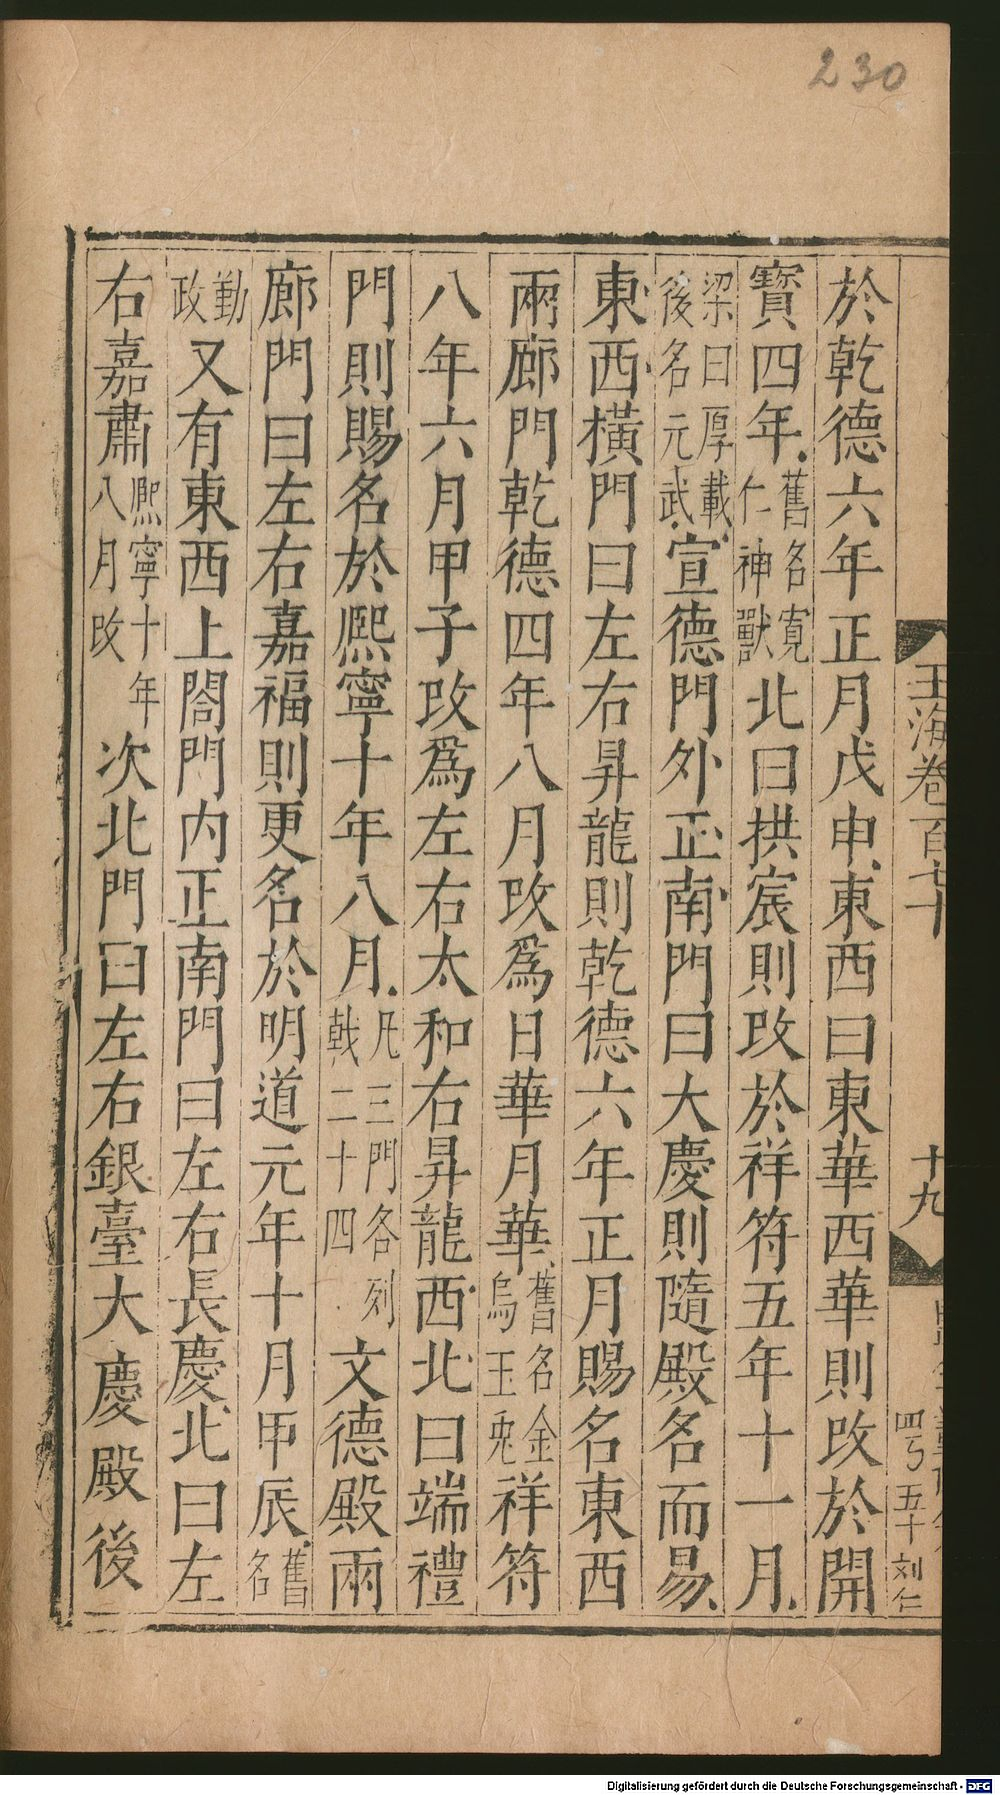 230
玉海卷一百七十
十九
四丂五十刘仁
於乾德六年正月戊申東西曰東華西華則改於開
寶四年舊名寬仁神獸北曰拱宸則改於祥符五年十一月
梁曰厚載後名元武宣德門外正南門曰大慶則隨殿名而易
東西橫門曰左右昇龍則乾德六年正月賜名東西
兩廊門乾德四年八月改爲日華月華舊名金烏玉兎祥符
八年六月甲子改爲左右太和右昇龍西北曰端禮
門則賜名於熙寧十年八月凡三門各列戟二十四文德殿兩
廊門曰左右嘉福則更名於明道元年十月甲辰舊名
勤政又有東西上閤門内正南門曰左右長慶北曰左
右嘉肅熙寧十年八月改次北門曰左右銀臺大慶殿後
Digitalisierung gefördert durch die Deutsche Forschungsgemeinschaft - DFG